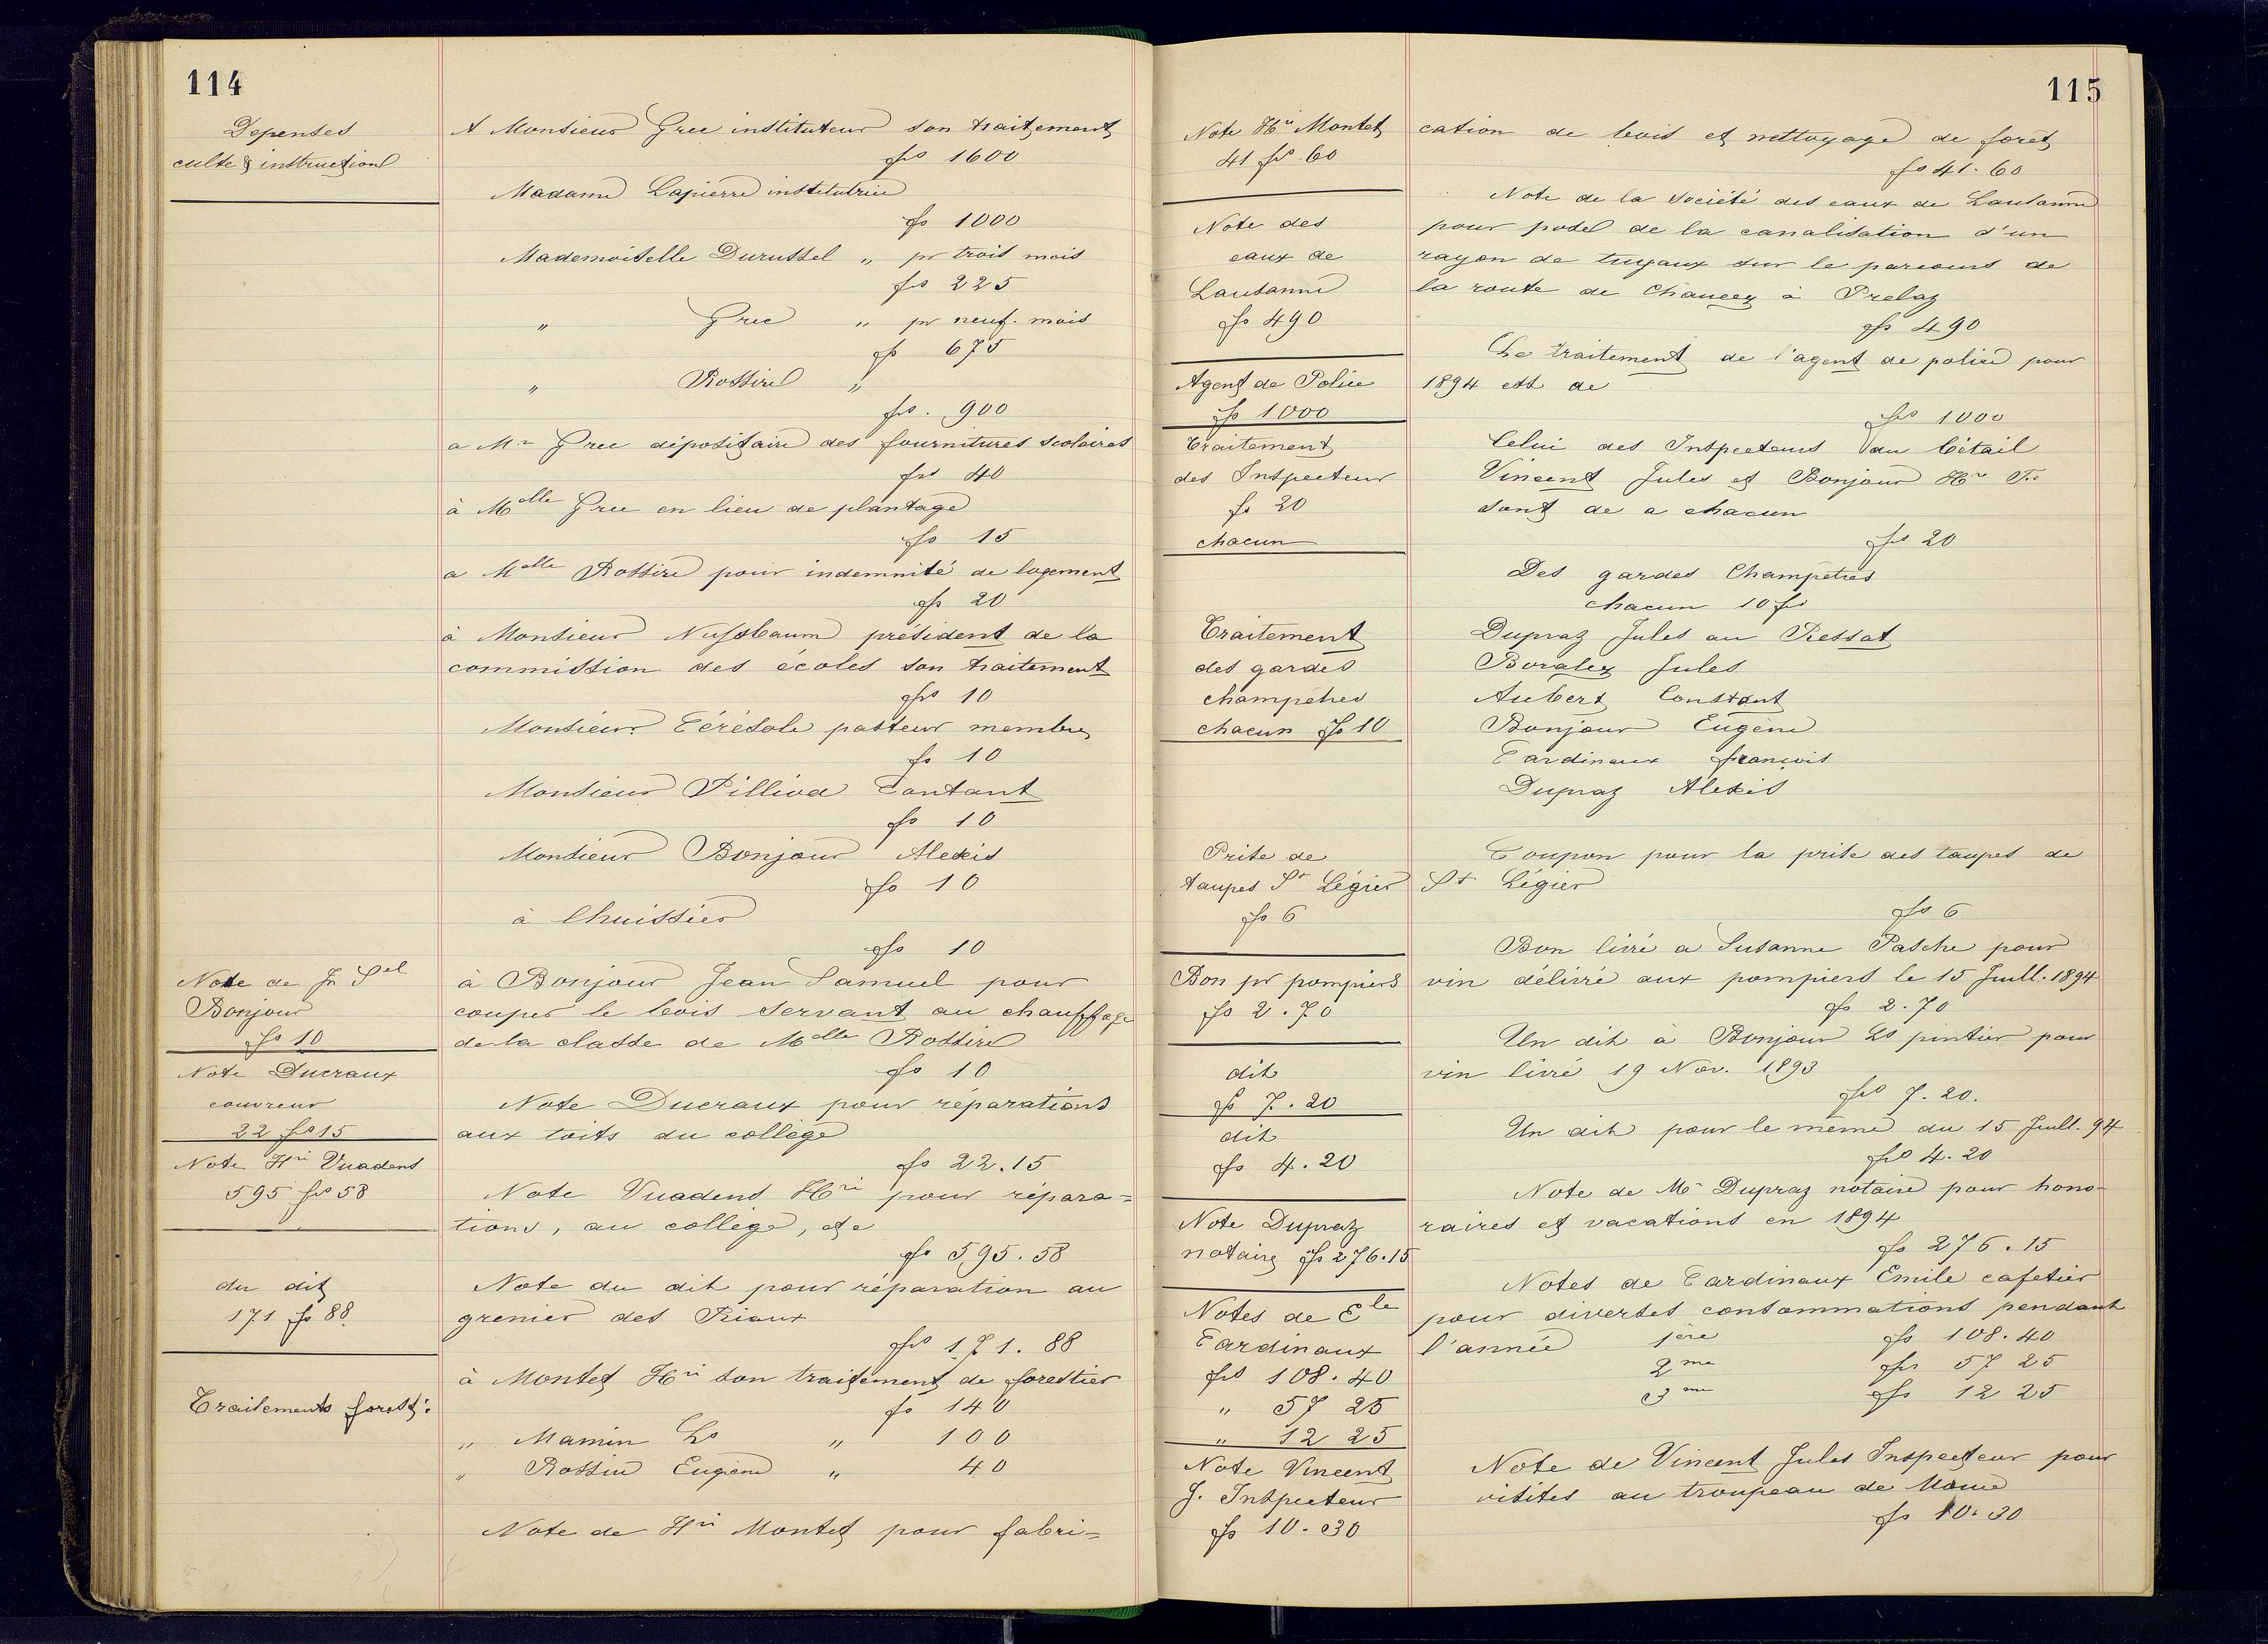 114
Depenses
culte & instruction
A Monsieur Grec instituteur son traitement
frs 1600
Madame Lapierre institutrice
fs 1000
Mademoiselle Durussel " pr trois mois
frs 225
" Grec " pr neuf. mois
fs 675
" Rossire "
frs. 900
a Mr Grec dépositaire des fournitures scolaires
frs 40
à Melle Grec en lieu de plantage
fs 15
a Melle Rossire pour indemnité de logement
fs 20
à Monsieur Nussbaum président de la
commission des écoles son traitement
frs 10
Monsieur Cérésole pasteur membre
fs 10
Monsieur Pilliod Contant
fs 10
Monsieur Bonjour Alexis
fs 10
à l'huissier
fs 10
Note de Jn Sel
Bonjour
fs 10
à Bonjour Jean Samuel pour
couper le bois servant au chauffage
de la classe de Melle Rossire
fs 10
Note Ducraux
couvreur
22 frs 15
Note Ducraux pour réparations
aux toits du collège
fs 22.15
Note Hri Vuadens
595 frs 58
Note Vuadens Hri pour répara=
tions, au collège, etc
fs 595.58
du dit
171 fs 88
Note du dit pour réparation au
grenier des Riaux
frs 171.88
Traitements forest:
à Montet Hri son traitement de forestier
fs 140
" Mamin Ls " 100
" Rossire Eugène " 40
Note de Hri Montet pour fabri=
115
Note Hri Montet
41 frs 60
cation de bois et nettoyage de forêt
fs 41.60
Note des
eaux de
Lausanne
fs 490
Note de la Société des eaux de Lausanne
pour posel de la canalisation d'un
rayon de tuyaux sur le parcours de
la route de Chaucey à Prelaz
fs 490
Agent de Police
fs 1000
Le traitement de l'agent de police pour
1894 est de
frs 1000
Traitement
des Inspecteur
fs 20
chacun
Celui des Inspecteurs du bétail
Vincent Jules et Bonjour Hri Fs
sont de a chacun
frs 20
Traitement
des gardes
champêtres
chacun fs 10
Des gardes Champetres
chacun 10 frs
Dupraz Jules au Ressat
Boraley Jules
Aubert Constant
Bonjour Eugène
Cardinaux françois
Dupraz Alexis
Prise de
taupes St Légier
fs 6
Coupon pour la prise des taupes de
St Légier
frs 6
Bon pr pompiers
fs 2.70
Bon livré a Susanne Pasche pour
vin délivré aux pompiers le 15 Juill. 1894
fs 2.70
dit
fs 7.20
Un dit à Bonjour Ls pintier pour
vin livré 19 Nov. 1893
frs 7.20.
dit
fs 4.20
Un dit pour le même du 15 Juill. 94
frs 4.20
Note Dupraz
notaire fs 276.15
Note de Mr Dupraz notaire pour hono-
raires et vacations en 1894
fs 276.15
Notes de Ele
Cardinaux
frs 108.40
" 57 25
" 12 25
Notes de Cardinaux Emile cafetier
pour diverses consommations pendant
l'année 1ère fs 108.40
2me frs 57 25
3me fs 12 25
Note Vincent
J. Inspecteur
fs 10.30
Note de Vincent Jules Inspecteur pour
visites au troupeau de
fs 10.30